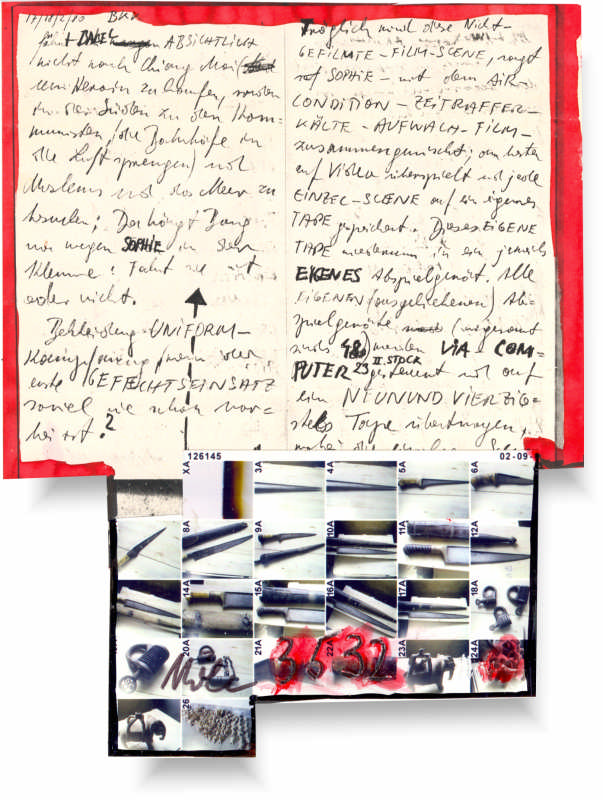 17/18/2/80 BKK
fährt DANIEL ABSICHTLICH
nicht nach Chiang Mai
um Heroin zu kaufen, sondern
in den Süden zu den Kom-
munisten, die Bahnhöfe in
die Luft sprengen, und
Moslems und das Meer zu
besuchen; Da hängt Dang
nur wegen SOPHIE in der
Klemme: Fährt sie mit
oder nicht.
Bekleidung-UNIFORM-
wenn der
erste GEFECHTSEINSATZ
soviel wie schon vor-
bei ist?
Möglich wird diese Nicht-
GEFILMTE-FILM-SCENE, sagt
SOPHIE - mit dem AIR
CONDITION-ZEITRAFFER-
KÄLTE-AUFWACH-FILM-
zusammengemischt; am besten
auf Video überspielt und jede
EINZEL-SCENE auf ein eigenes
TAPE gespeichert. Dieses EIGENE
TAPE wiederum in ein jeweils
EIGENES Abspielgerät. Alle
EIGENEN (ausgeliehenen) Ab-
spielgeräte (insgesamt
sind's 48) werden VIA-COM-
PUTER 23 II. STOCK gesteuert und auf
ein NEUNUNDVIERZIG-
stes Tape übertragen,
XA 126145 3A 4A 5A 6A 02-09
8A 9A 10A 11A 12A
14A 15A 16A 17A 18A
20A 21A 22A 23A 24A
3532
26